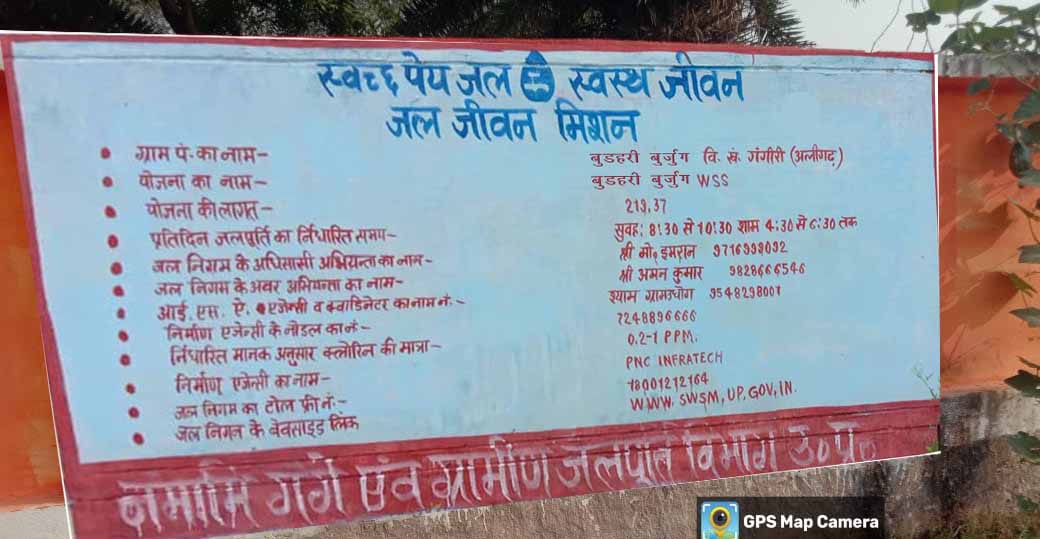 स्वच्छ पेय जल स्वस्थ जीवन
जल जीवन मिशन
ग्राम पं. का नाम- बुडहरी बुर्जुग वि. खं. गंगीरी (अलीगढ़)
योजना का नाम- बुडहरी बुर्जुग WSS
योजना की लागत- 219.37
प्रतिदिन जलपूर्ति का र्निधारित समय- सुवह: 8:30 से 10:30 शाम 4:30 से 6:30 तक
जल निगम के अधिसासी अभियन्ता का नाम- श्री मो0 इमरान 9716998092
जल निगम के अवर अभियन्ता का नाम- श्री अमन कुमार 9828666546
आई. एस. ए. एजेन्सी व क्वाडिनेटर का नाम नं.- श्याम ग्रामउधोग 9548298001
निर्माण एजेन्सी के नोडल का नं- 7248896666
र्निधारित मानक अनुसार क्लोरिन की मात्रा- 0.2-1 PPM.
निर्माण एजेन्सी का नाम- PNC INFRATECH
जल निगम का टोल फ्री नं.- 18001212164
जल निगम के बेवसाइड लिंक WWW. SWSM, UP. GOV, IN.
नमामि गंगे एंव ग्रामीण जलपूर्ति विभाग उ० प्र०
GPS Map Camera